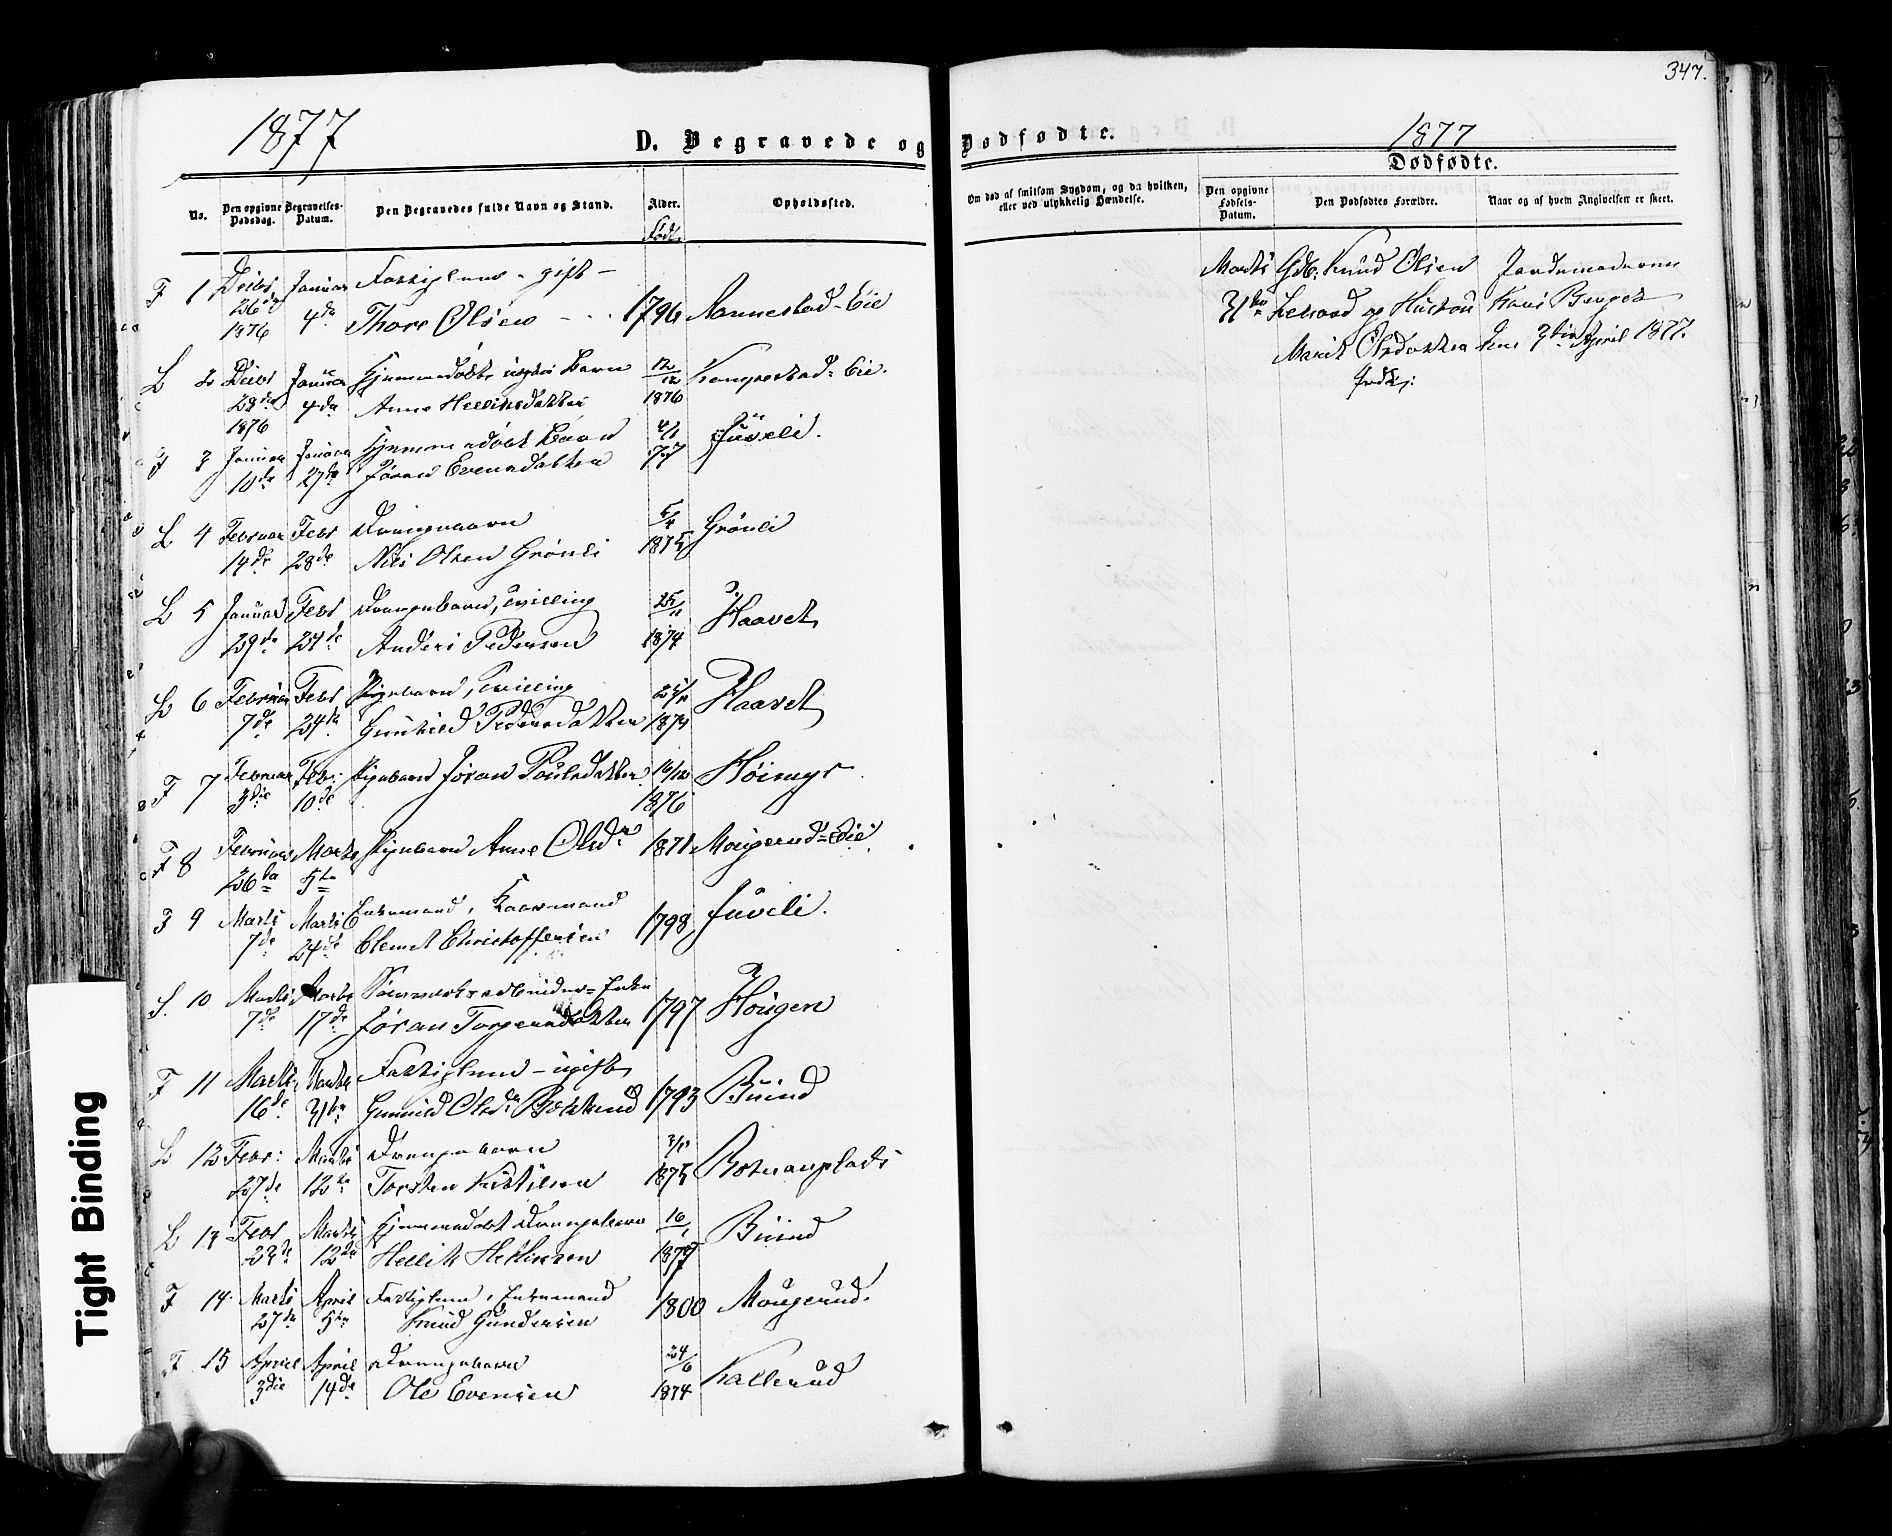 347.
1877
D. Begravede og Dødfødte.
1877
Dødfødte.
No.
Den opgivne Dødsdag.
Begravelses-Datum.
Den Begravedes fulde Navn og Stand.
Alder.
Født.
Opholdssted.
Om død af smitsom Sygdom, og da hvilken, eller ved ulykkelig Hændelse.
Den opgivne Fødsels-Datum.
Den Dødfødtes Forældre.
Naar og af hvem Angivelsen er skeet.
F 1 Januar gift
26de 4de Thore Olsen 1796 Eie
1876
L 2 Januar Hjemmedøbt Barn 12/12
28de 4de Anne 1876 Eie.
1876
3 Januar Januar Hjemmedøbt Barn 4/1 Juveli.
10de 27de Jøran Evensdatter 77
L 4 Februar Febr Drengebarn Grønli
14de 28de Nils Olsen Grønli 1875
L 5 Januar Febr Drengebarn, Tvilling 25/11 Haavet
29de 24de Anders Pedersen 1874
L 6 Februar Febr Pigebarn, Tvilling 25/11 Haavet
7de 24de Gunhild Pedersdatter 1874
F 7 Februar Febr: Pigebarn Jøran Paulsdatter 16/12 Høimyr
3die 10de 1876
F 8 Februar Marts Pigebarn Anne Olsdr 1871 Mougerud-Eie
26de 5te
F 9 Marts Marts Enkemand, Kaarmand 1798 Juveli.
7de 24de Clemet Christoffersen
S. 10 Marts Marts Enke 1797 Hougen
7de 17de Jøran
F 11 Marts Marts ugift
16de 31te Gunhild Olsdr 1793 Buind
L 12 Febr: Marts Drengebarn
27de 12te Torsten Kittilsen 1875
L 13 Febr Marts Hjemmedøbt Drengebarn 16/1 Buind
12te Hellik Helliksen 1877
F 14 Marts April Enkemand 1800 Mougerud.
27de 5te Knud Gundersen
F 15 April April Drengebarn 24/6 Kallerud
3die 14de Ole Evensen 1874
Marts Gdb: Knud Olsen Jordemoderen
31te og Hustru
Marit Olsdatter den 7de April 1877.
Tight Binding